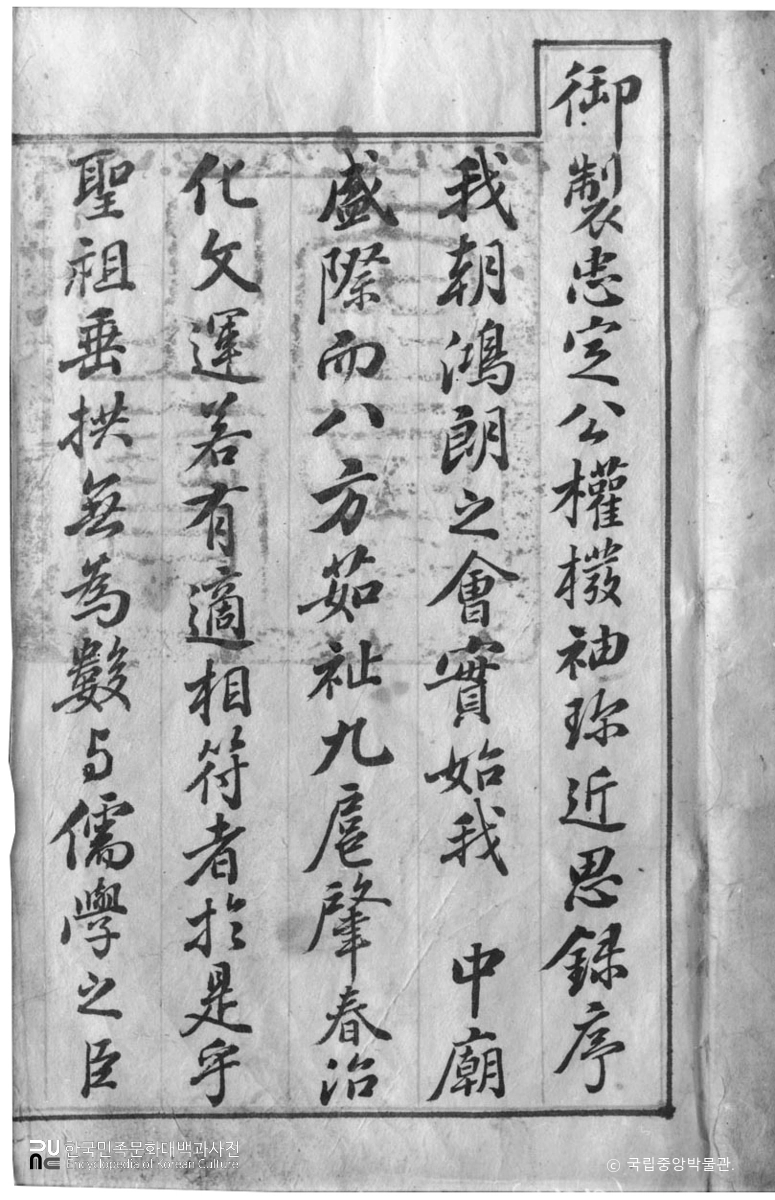 御製忠定公權橃袖珍近思錄序
我朝鴻朗之會實始我 中廟
盛際而八方茹祉九扈肇春治
化文運若有適相符者於是乎
聖祖垂拱無為數与儒學之臣
한국민족문화대백과사전
Encyclopedia of Korean Culture
© 국립중앙박물관.